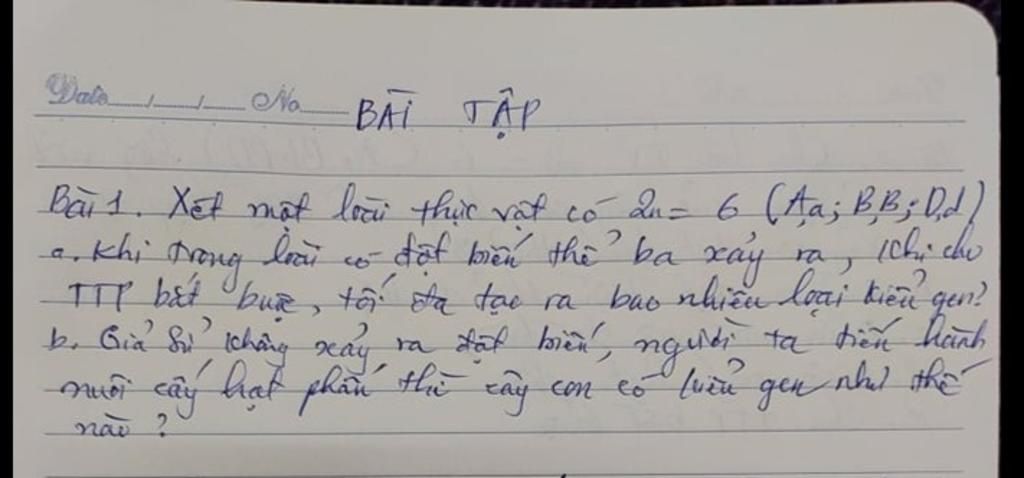 Date / / No
BÀI TẬP
Bài 1. Xét một loài thực vật có 2n = 6 (A,a; B,B; D,d)
a. Khi trong loài có đột biến thể ba xảy ra, khi cho
TTP bắt buộc, tối đa tạo ra bao nhiêu loại kiểu gen?
b. Giả sử không xảy ra đột biến, người ta tiến hành
nuôi cấy hạt phấn thì cây con có kiểu gen như thế
nào?